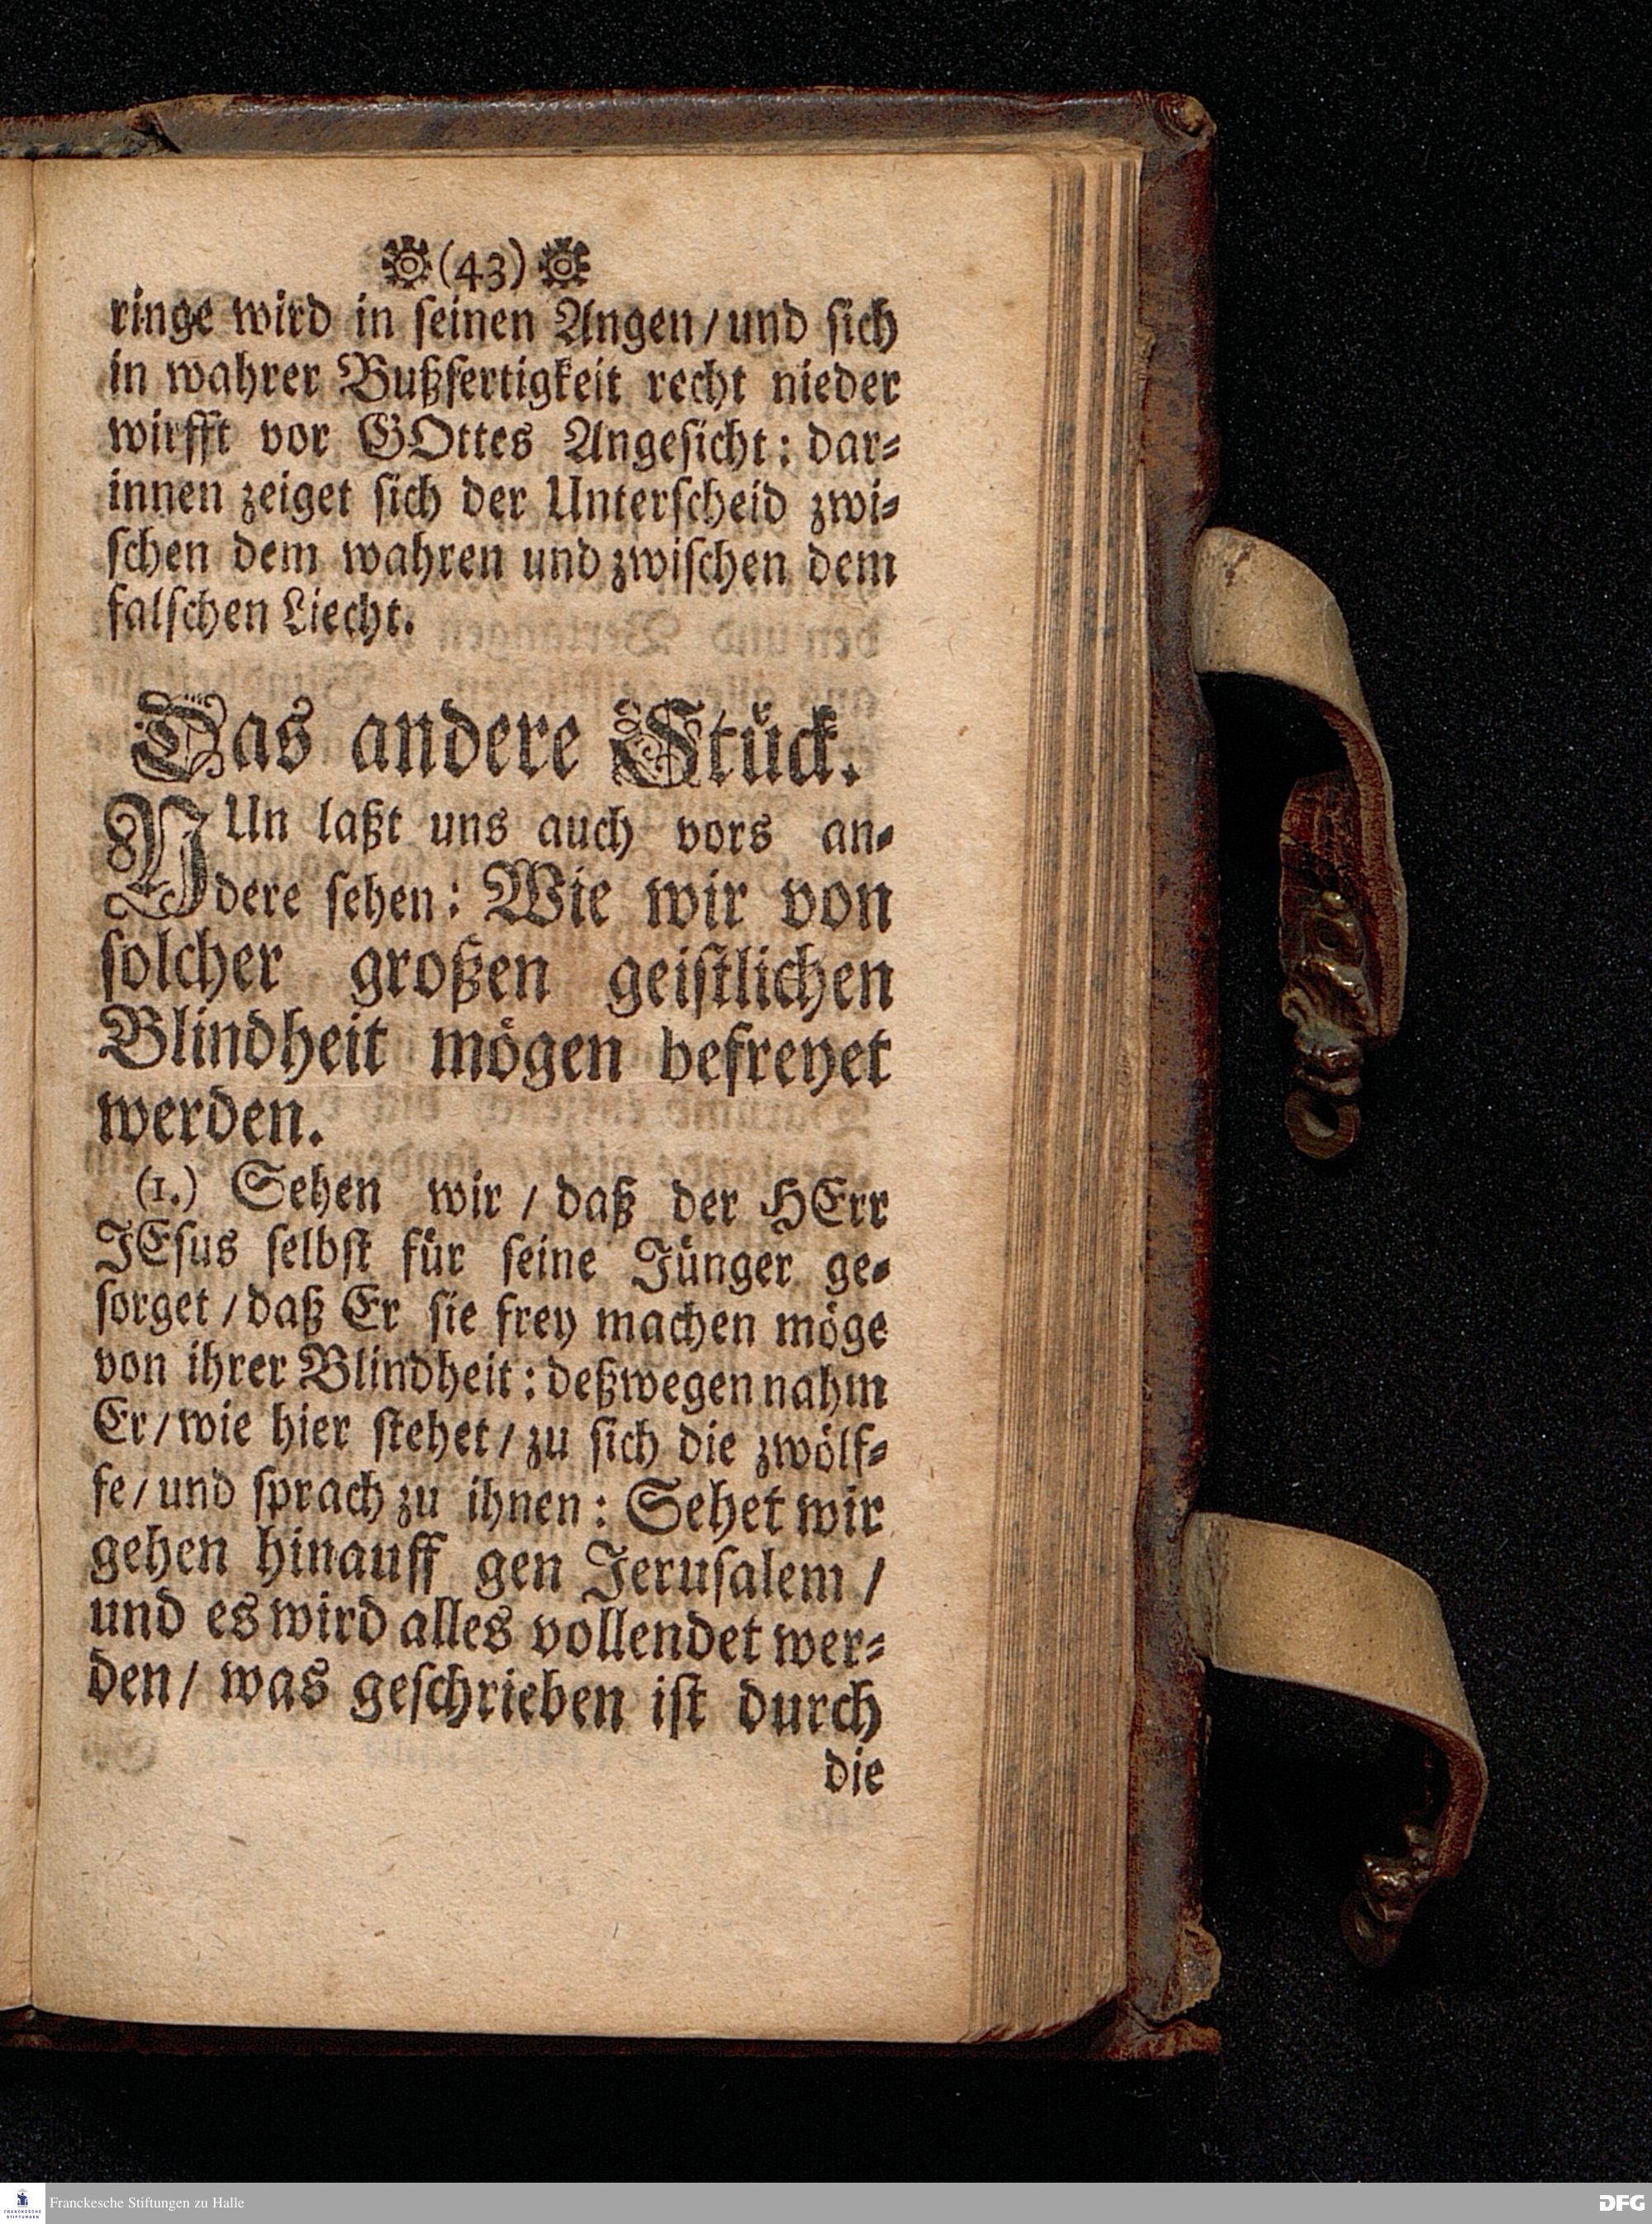 (43)
ringe wird in seinen Angen / und sich
in wahrer Bußfertigkeit recht nieder
wirfft vor GOttes Angesicht: dar-
innen zeiget sich der Unterscheid zwi-
schen dem wahren und zwischen dem
falschen Liecht.
Das andere Stück.
NUn laßt uns auch vors an-
dere sehen: Wie wir von
solcher großen geistlichen
Blindheit mögen befreyet
werden.
(1.) Sehen wir / daß der HErr
JEsus selbst für seine Jünger ge-
sorget / daß Er sie frey machen möge
von ihrer Blindheit: deßwegen nahm
Er / wie hier stehet / zu sich die zwölf-
fe / und sprach zu ihnen: Sehet wir
gehen hinauff gen Jerusalem /
und es wird alles vollendet wer-
den / was geschrieben ist durch
die
Franckesche Stiftungen zu Halle
DFG